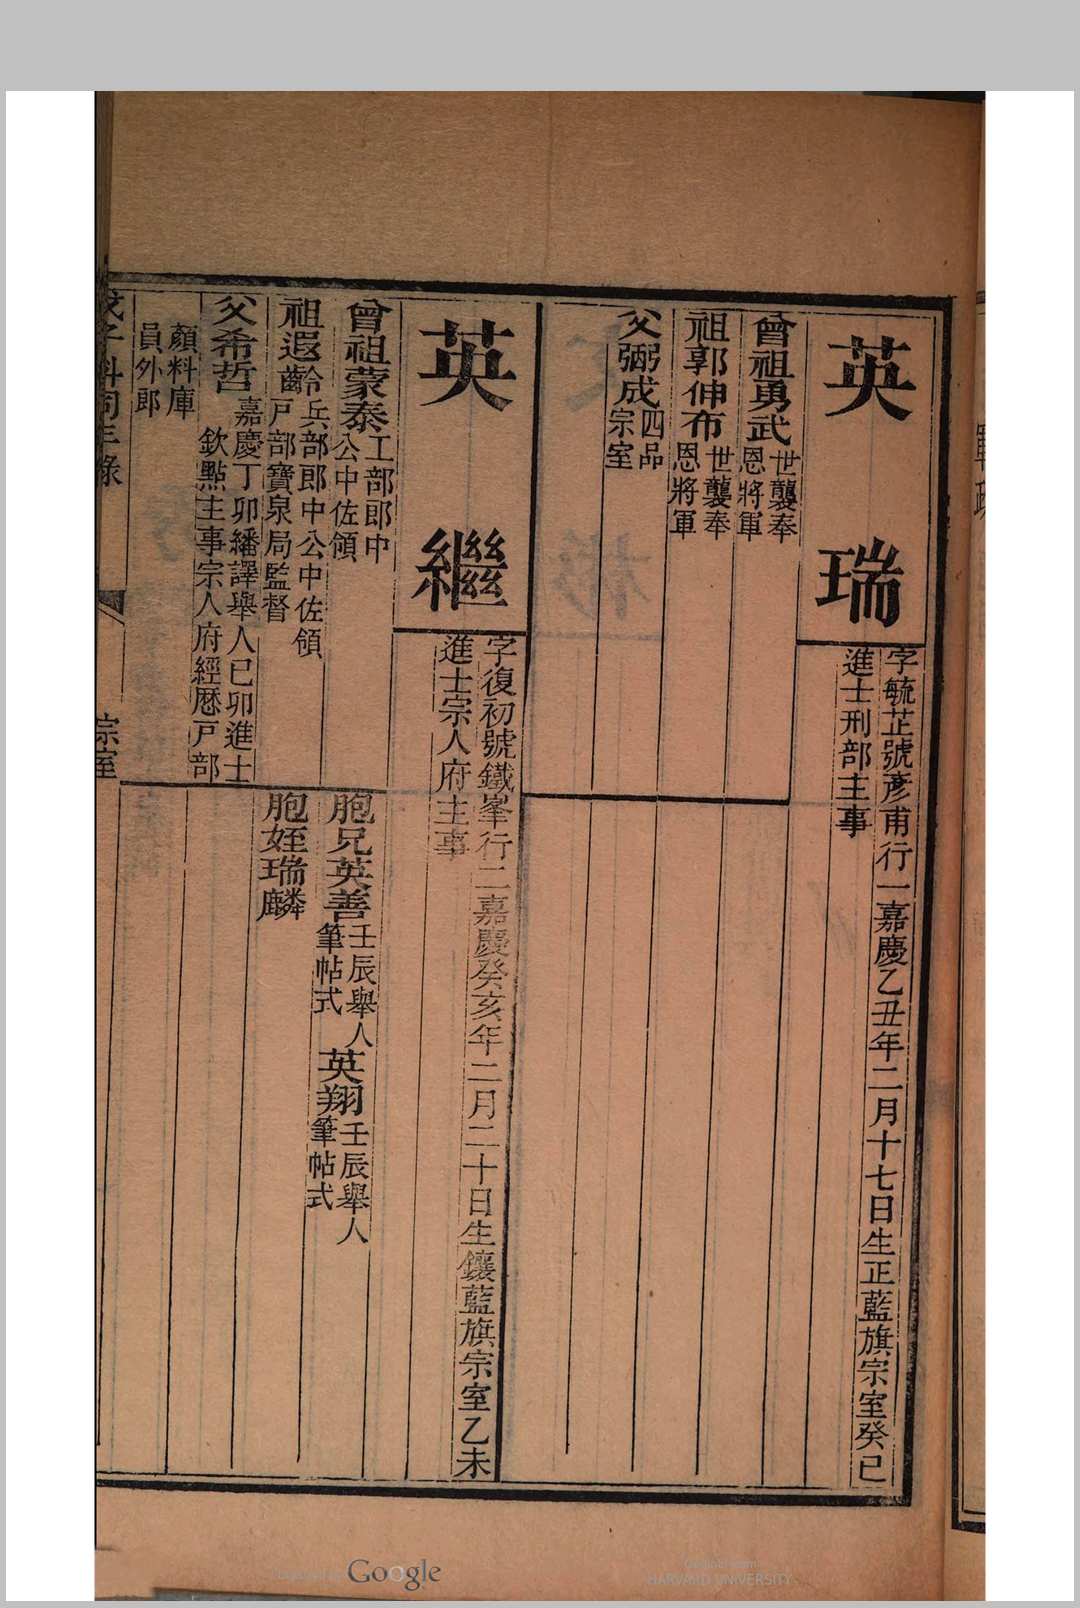 英瑞
字毓芷號彥甫行一嘉慶乙丑年二月十七日生正藍旗宗室癸巳
進士刑部主事
曾祖勇武世襲奉
恩將軍
祖郭伸布世襲奉
恩將軍
父弼成四品
宗室
英繼
字復初號鐵峯行二嘉慶癸亥年二月二十日生鑲藍旗宗室乙未
進士宗人府主事
曾祖蒙泰工部郎中
公中佐領
祖遐齡兵部郎中公中佐領
戶部寶泉局監督
父希哲嘉慶丁卯繙譯舉人已卯進士
欽點主事宗人府經歷戶部
顏料庫
員外郎
胞兄英善壬辰舉人
筆帖式
英翔壬辰舉人
筆帖式
胞姪瑞麟
戊子科同年錄
宗室
Google
HARVARD UNIVERSITY